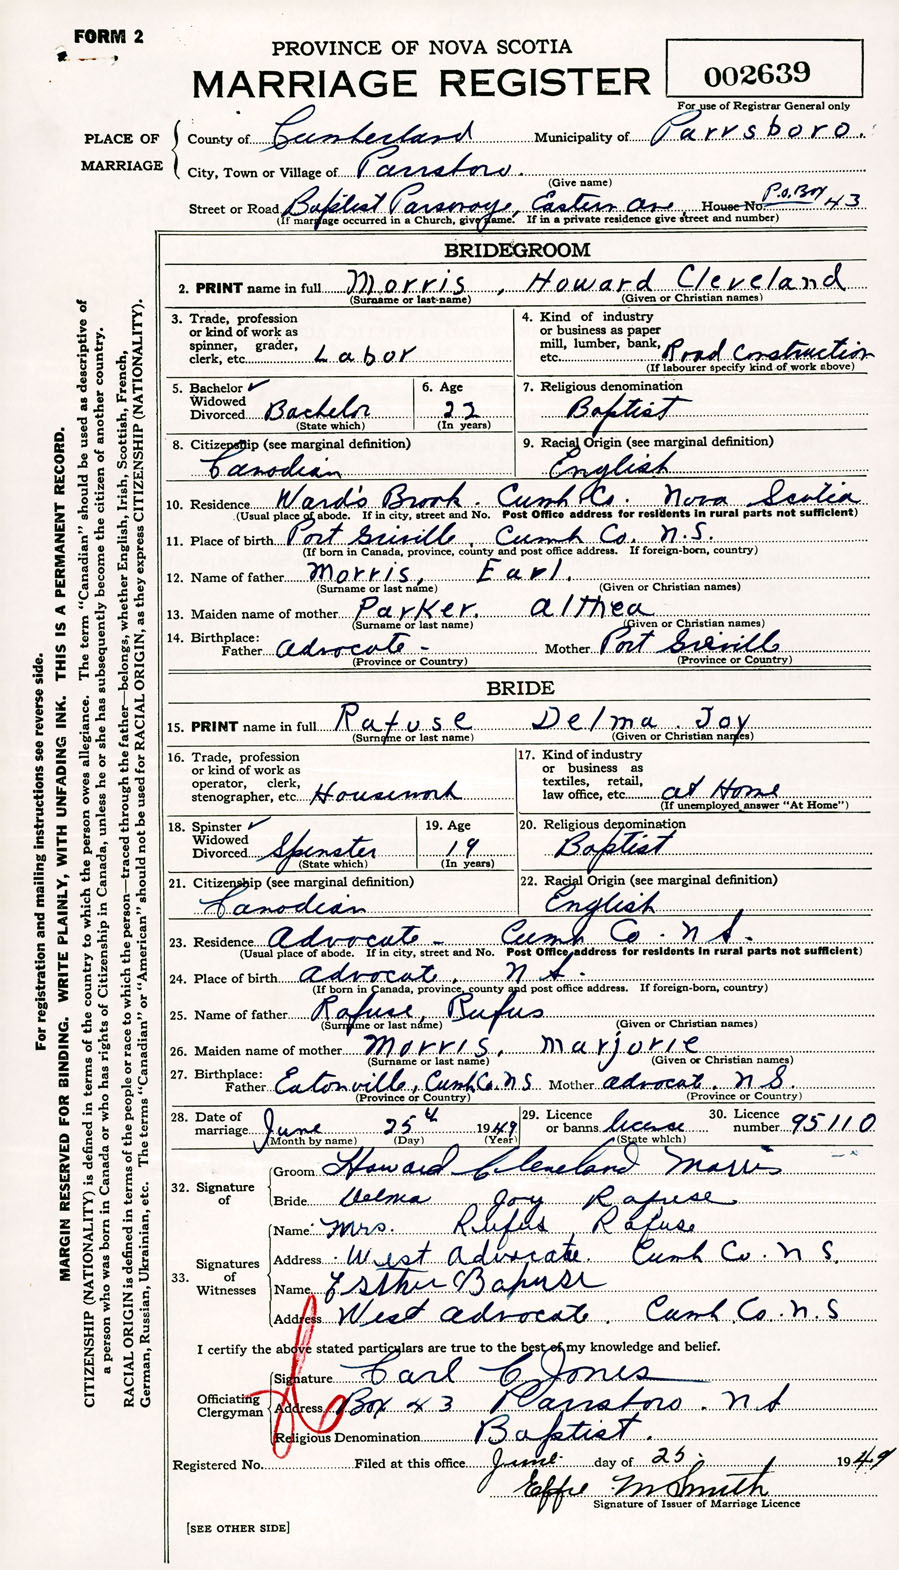 FORM 2
PROVINCE OF NOVA SCOTIA
MARRIAGE REGISTER
002639
For use of Registrar General only
PLACE OF MARRIAGE
County of Cumberland Municipality of Parrsboro.
City, Town or Village of Parrsboro.
(Give name)
Street or Road Baptist Parsonage, Eastern Ave House No. P.O. Box 43
(If marriage occurred in a Church, give name. If in a private residence give street and number)
BRIDEGROOM
2. PRINT name in full Morris, Howard Cleveland
(Surname or last name) (Given or Christian names)
3. Trade, profession or kind of work as spinner, grader, clerk, etc. Labor
4. Kind of industry or business as paper mill, lumber, bank, etc. Road Construction
(If labourer specify kind of work above)
5. Bachelor ✓ Widowed Divorced Bachelor
(State which)
6. Age 22
(In years)
7. Religious denomination Baptist
8. Citizenship (see marginal definition) Canadian
9. Racial Origin (see marginal definition) English
10. Residence Ward's Brook. Cumb Co. Nova Scotia
(Usual place of abode. If in city, street and No. Post Office address for residents in rural parts not sufficient)
11. Place of birth Port Greville, Cumb Co. N.S.
(If born in Canada, province, county and post office address. If foreign-born, country)
12. Name of father Morris, Earl.
(Surname or last name) (Given or Christian names)
13. Maiden name of mother Parker. Althea
(Surname or last name) (Given or Christian names)
14. Birthplace: Father Advocate - Mother Port Greville
(Province or Country) (Province or Country)
BRIDE
15. PRINT name in full Rafuse Delma Joy
(Surname or last name) (Given or Christian names)
16. Trade, profession or kind of work as operator, clerk, stenographer, etc. Housework
17. Kind of industry or business as textiles, retail, law office, etc. at Home
(If unemployed answer "At Home")
18. Spinster ✓ Widowed Divorced Spinster
(State which)
19. Age 19
(In years)
20. Religious denomination Baptist
21. Citizenship (see marginal definition) Canadian
22. Racial Origin (see marginal definition) English
23. Residence Advocate - Cumb Co. N S.
(Usual place of abode. If in city, street and No. Post Office address for residents in rural parts not sufficient)
24. Place of birth Advocate, N S.
(If born in Canada, province, county and post office address. If foreign-born, country)
25. Name of father Rafuse, Rufus
(Surname or last name) (Given or Christian names)
26. Maiden name of mother Morris, Marjorie
(Surname or last name) (Given or Christian names)
27. Birthplace: Father Eatonville, Cumb Co. N S Mother advocate. N S.
(Province or Country) (Province or Country)
28. Date of marriage June 25th 1949
(Month by name) (Day) (Year)
29. Licence or banns license
(State which)
30. Licence number 95110
32. Signature of
Groom Howard Cleveland Morris
Bride Delma Joy Rafuse
33. Signatures of Witnesses
Name Mrs. Rufus Rafuse
Address West Advocate. Cumb Co. N S.
Name Esther Rafuse
Address West advocate. Cumb Co. N. S
I certify the above stated particulars are true to the best of my knowledge and belief.
Officiating Clergyman
Signature Carl C Jones
Address Box 43 Parrsboro. N S
Religious Denomination Baptist.
Registered No. Filed at this office June day of 25. 1949
Effie M Smith
Signature of Issuer of Marriage Licence
[SEE OTHER SIDE]
For registration and mailing instructions see reverse side.
MARGIN RESERVED FOR BINDING. WRITE PLAINLY, WITH UNFADING INK. THIS IS A PERMANENT RECORD.
CITIZENSHIP (NATIONALITY) is defined in terms of the country to which the person owes allegiance. The term "Canadian" should be used as descriptive of
a person who was born in Canada or who has rights of Citizenship in Canada, unless he or she has subsequently become the citizen of another country.
RACIAL ORIGIN is defined in terms of the people or race to which the person—traced through the father—belongs, whether English, Irish, Scottish, French,
German, Russian, Ukrainian, etc. The terms "Canadian" or "American" should not be used for RACIAL ORIGIN, as they express CITIZENSHIP (NATIONALITY).